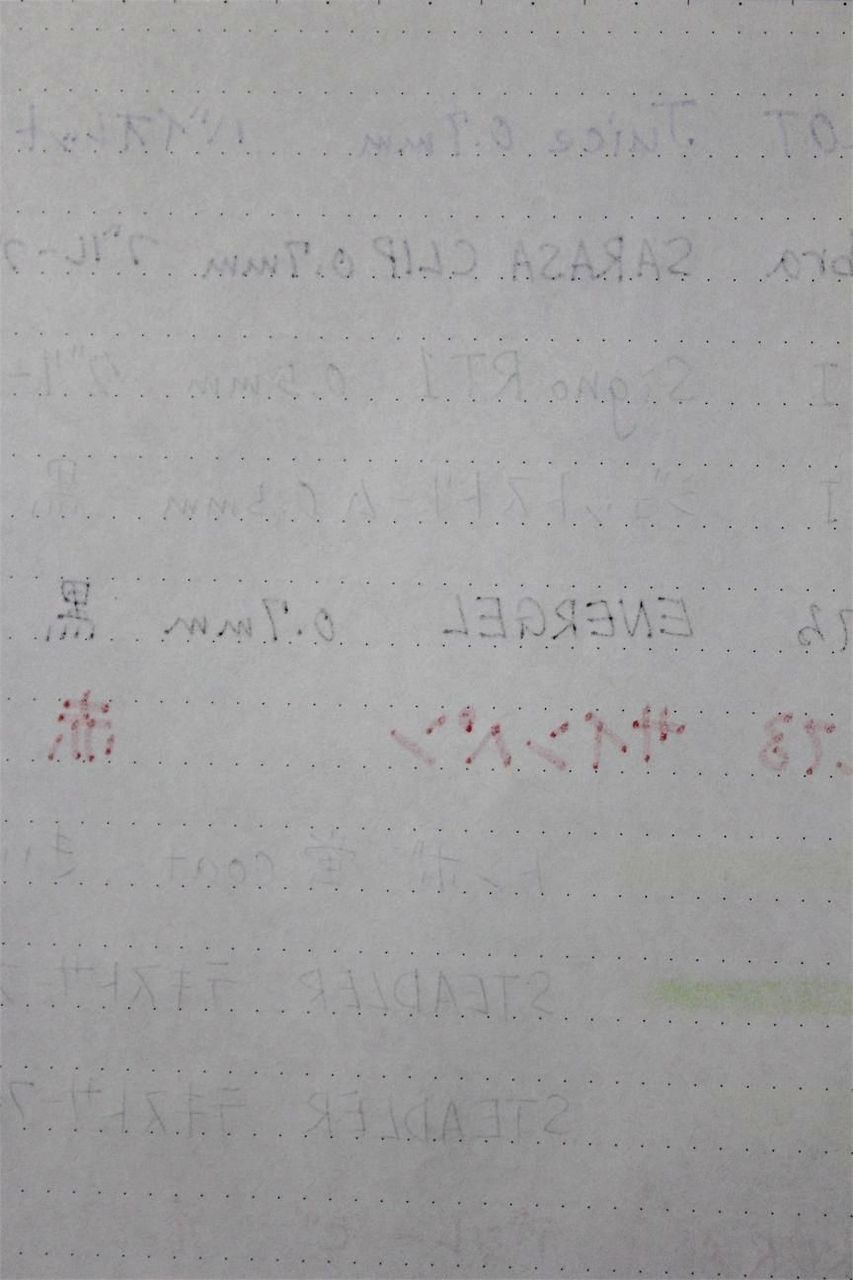 OT Juice 0.7mm バイオレット
bra SARASA CLIP 0.7mm ブルーブ
I Signo RT1 0.5mm ブルー
I ジェットストリーム 0.5mm 黒
てる ENERGEL 0.7mm 黒
てる サインペン 赤
トンボ 蛍coat き
STEADLER テキストサーフ
STEADLER テキストサーフ